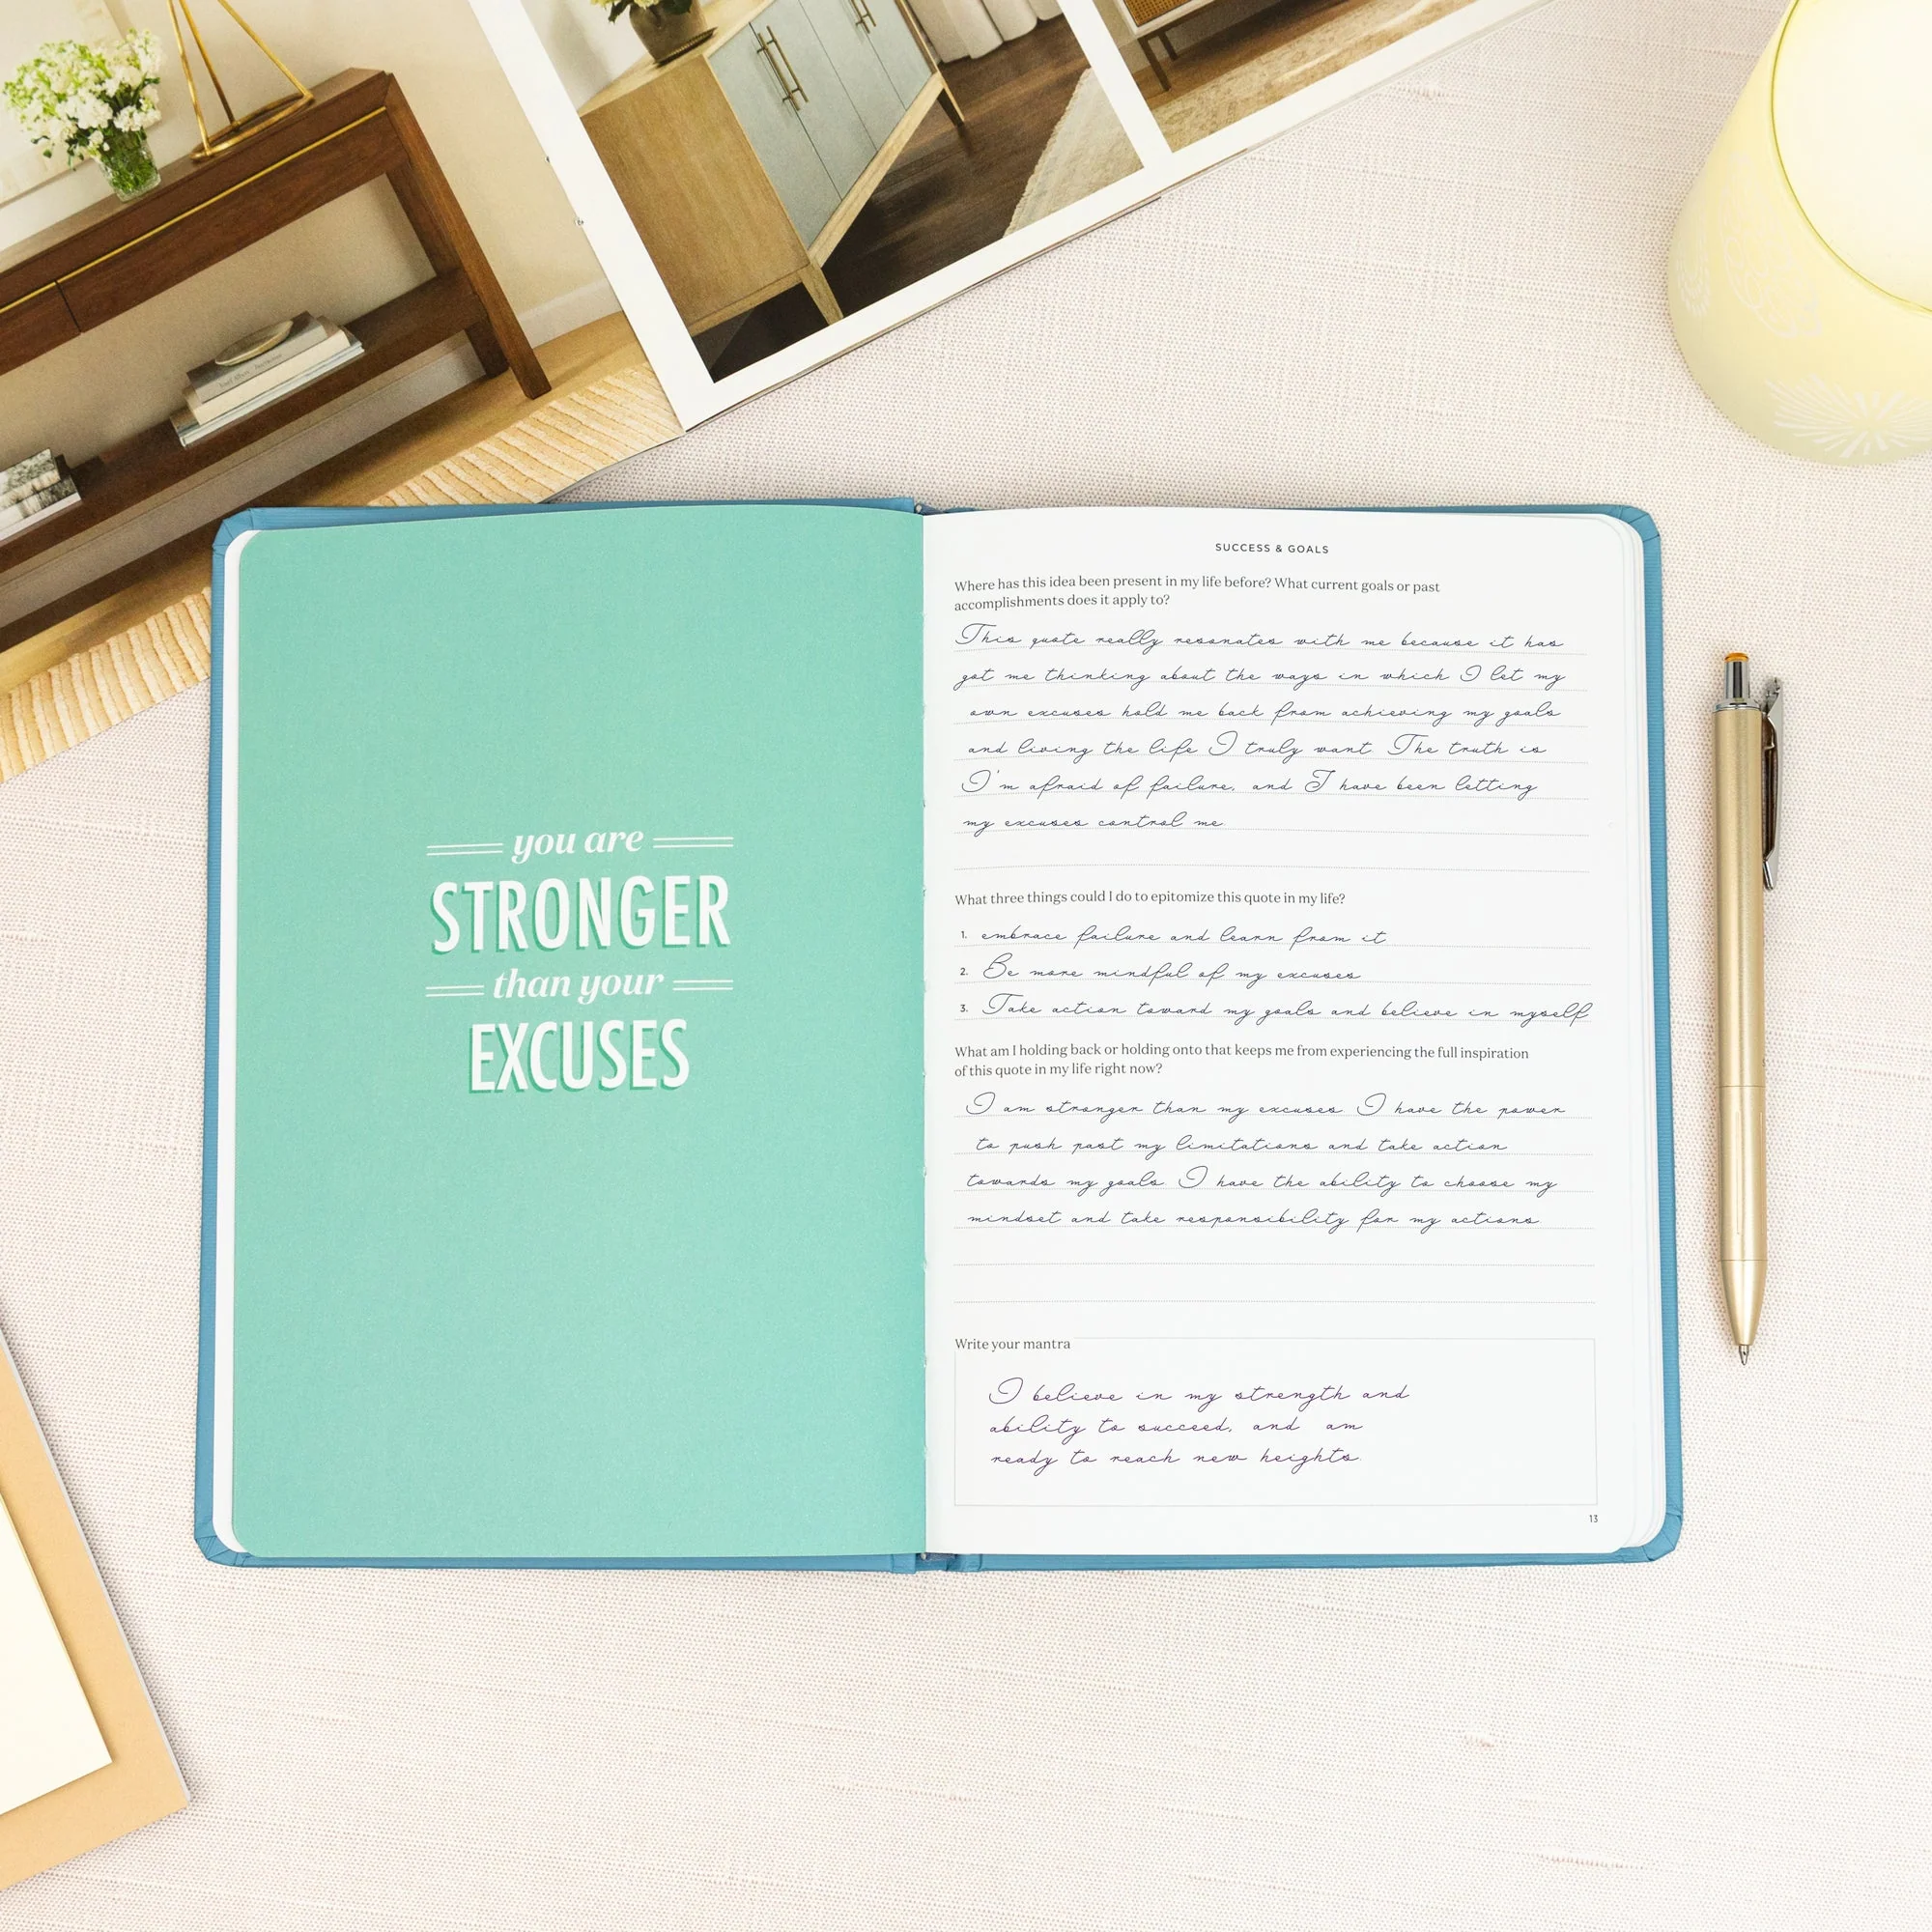 you are
STRONGER
than your
EXCUSES
SUCCESS & GOALS
Where has this idea been present in my life before? What current goals or past
accomplishments does it apply to?
This quote really resonates with me because it has
got me thinking about the ways in which I let my
own excuses hold me back from achieving my goals
and living the life I truly want. The truth is
I'm afraid of failure, and I have been letting
my excuses control me.
What three things could I do to epitomize this quote in my life?
1. embrace failure and learn from it
2. Be more mindful of my excuses
3. Take action toward my goals and believe in myself
What am I holding back or holding onto that keeps me from experiencing the full inspiration
of this quote in my life right now?
I am stronger than my excuses. I have the power
to push past my limitations and take action
towards my goals. I have the ability to choose my
mindset and take responsibility for my actions.
Write your mantra
I believe in my strength and
ability to succeed, and am
ready to reach new heights.
13